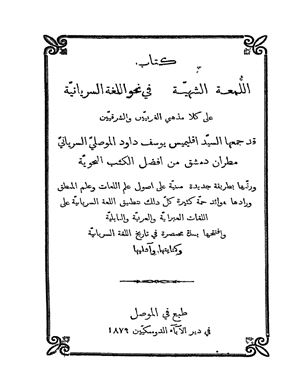 كتاب
اللمعة الشهيّة في نحو اللغة السريانيّة
على كلا مذهبي الغربيّين والشرقيّين
قد جمعها السيّد اقليميس يوسف داود الموصلي السرياني
مطران دمشق من افضل الكتب النحويّة
ورتّبها بطريقة جديدة مبنيّة على اصول علم اللغات وعلم المنطق
وزادها فوائد جمّة كثيرة كلّ ذلك بتطبيق اللغة السريانيّة على
اللغات العبرانيّة والعربيّة والبابليّة
والحقها بنبذة مختصرة في تاريخ اللغة السريانيّة
وكتابتها وآدابها
طبع في الموصل
في دير الآباء الدومنكيين ١٨٧٩